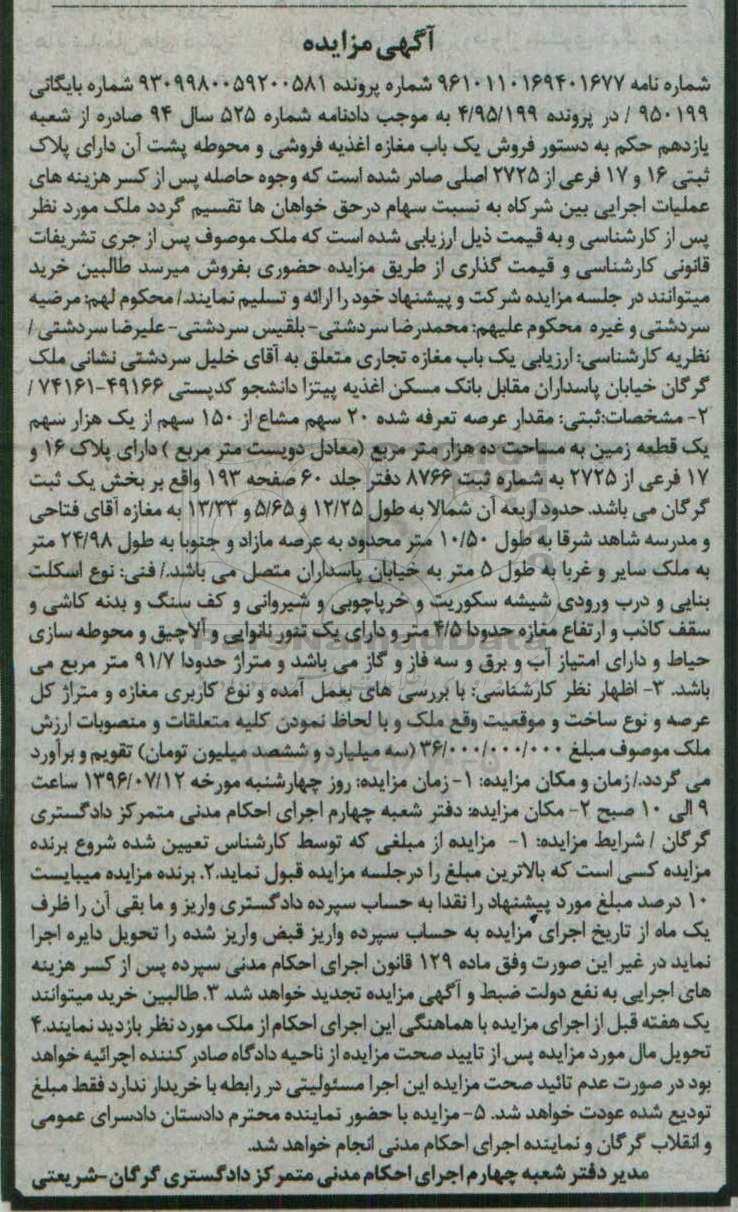 آگهی مزایده
شماره نامه ۹۶۱۰۱۱۰۱۶۹۴۰۱۶۷۷ شماره پرونده ۹۳۰۹۹۸۰۰۵۹۲۰۰۵۸۱ شماره بایگانی
۹۵۰۱۹۹ / در پرونده ۴/۹۵/۱۹۹ به موجب دادنامه شماره ۵۲۵ سال ۹۴ صادره از شعبه
یازدهم حکم به دستور فروش یک باب مغازه اغذیه فروشی و محوطه پشت آن دارای پلاک
ثبتی ۱۶ و ۱۷ فرعی از ۲۷۲۵ اصلی صادر شده است که وجوه حاصله پس از کسر هزینه های
عملیات اجرایی بین شرکاه به نسبت سهام درحق خواهان ها تقسیم گردد ملک مورد نظر
پس از کارشناسی و به قیمت ذیل ارزیابی شده است که ملک موصوف پس از جری تشریفات
قانونی کارشناسی و قیمت گذاری از طریق مزایده حضوری بفروش میرسد طالبین خرید
میتوانند در جلسه مزایده شرکت و پیشنهاد خود را ارائه و تسلیم نمایند./ محکوم لهم: مرضیه
سردشتی و غیره محکوم علیهم: محمدرضا سردشتی- بلقیس سردشتی- علیرضا سردشتی/
نظریه کارشناسی: ارزیابی یک باب مغازه تجاری متعلق به آقای خلیل سردشتی نشانی ملک
گرگان خیابان پاسداران مقابل بانک مسکن اغذیه پیتزا دانشجو کدپستی ۴۹۱۶۶-۷۴۱۶۱ /
۲- مشخصات:ثبتی: مقدار عرصه تعرفه شده ۲۰ سهم مشاع از ۱۵۰ سهم از یک هزار سهم
یک قطعه زمین به مساحت ده هزار متر مربع (معادل دویست متر مربع ) دارای پلاک ۱۶ و
۱۷ فرعی از ۲۷۲۵ به شماره ثبت ۸۷۶۶ دفتر جلد ۶۰ صفحه ۱۹۳ واقع بر بخش یک ثبت
گرگان می باشد. حدود اربعه آن شمالا به طول ۱۲/۲۵ و ۵/۶۵ و ۱۳/۳۳ به مغازه آقای فتاحی
و مدرسه شاهد شرقا به طول ۱۰/۵۰ متر محدود به عرصه مازاد و جنوبا به طول ۲۴/۹۸ متر
به ملک سایر و غربا به طول ۵ متر به خیابان پاسداران متصل می باشد./ فنی: نوع اسکلت
بنایی و درب ورودی شیشه سکوریت و خرپاچوبی و شیروانی و کف سنگ و بدنه کاشی و
سقف کاذب و ارتفاع مغازه حدودا ۴/۵ متر و دارای یک تنور نانوایی و آلاچیق و محوطه سازی
حیاط و دارای امتیاز آب و برق و سه فاز و گاز می باشد و متراژ حدودا ۹۱/۷ متر مربع می
باشد. ۳- اظهار نظر کارشناسی: با بررسی های بعمل آمده و نوع کاربری مغازه و متراژ کل
عرصه و نوع ساخت و موقعیت وقع ملک و با لحاظ نمودن کلیه متعلقات و منصوبات ارزش
ملک موصوف مبلغ ۳۶/۰۰۰/۰۰۰/۰۰۰ (سه میلیارد و ششصد میلیون تومان) تقویم و برآورد
می گردد./ زمان و مکان مزایده: ۱- زمان مزایده: روز چهارشنبه مورخه ۱۳۹۶/۰۷/۱۲ ساعت
۹ الی ۱۰ صبح ۲- مکان مزایده: دفتر شعبه چهارم اجرای احکام مدنی متمرکز دادگستری
گرگان / شرایط مزایده: ۱- مزایده از مبلغی که توسط کارشناس تعیین شده شروع برنده
مزایده کسی است که بالاترین مبلغ را درجلسه مزایده قبول نماید.۲. برنده مزایده میبایست
۱۰ درصد مبلغ مورد پیشنهاد را نقدا به حساب سپرده دادگستری واریز و ما بقی آن را ظرف
یک ماه از تاریخ اجرای مزایده به حساب سپرده واریز قبض واریز شده را تحویل دایره اجرا
نماید در غیر این صورت وفق ماده ۱۲۹ قانون اجرای احکام مدنی سپرده پس از کسر هزینه
های اجرایی به نفع دولت ضبط و آگهی مزایده تجدید خواهد شد. ۳. طالبین خرید میتوانند
یک هفته قبل از اجرای مزایده با هماهنگی این اجرای احکام از ملک مورد نظر بازدید نمایند.۴
تحویل مال مورد مزایده پس از تایید صحت مزایده از ناحیه دادگاه صادر کننده اجرائیه خواهد
بود در صورت عدم تائید صحت مزایده این اجرا مسئولیتی در رابطه با خریدار ندارد فقط مبلغ
تودیع شده عودت خواهد شد. ۵- مزایده با حضور نماینده محترم دادستان دادسرای عمومی
و انقلاب گرگان و نماینده اجرای احکام مدنی انجام خواهد شد.
مدیر دفتر شعبه چهارم اجرای احکام مدنی متمرکز دادگستری گرگان-شریعتی